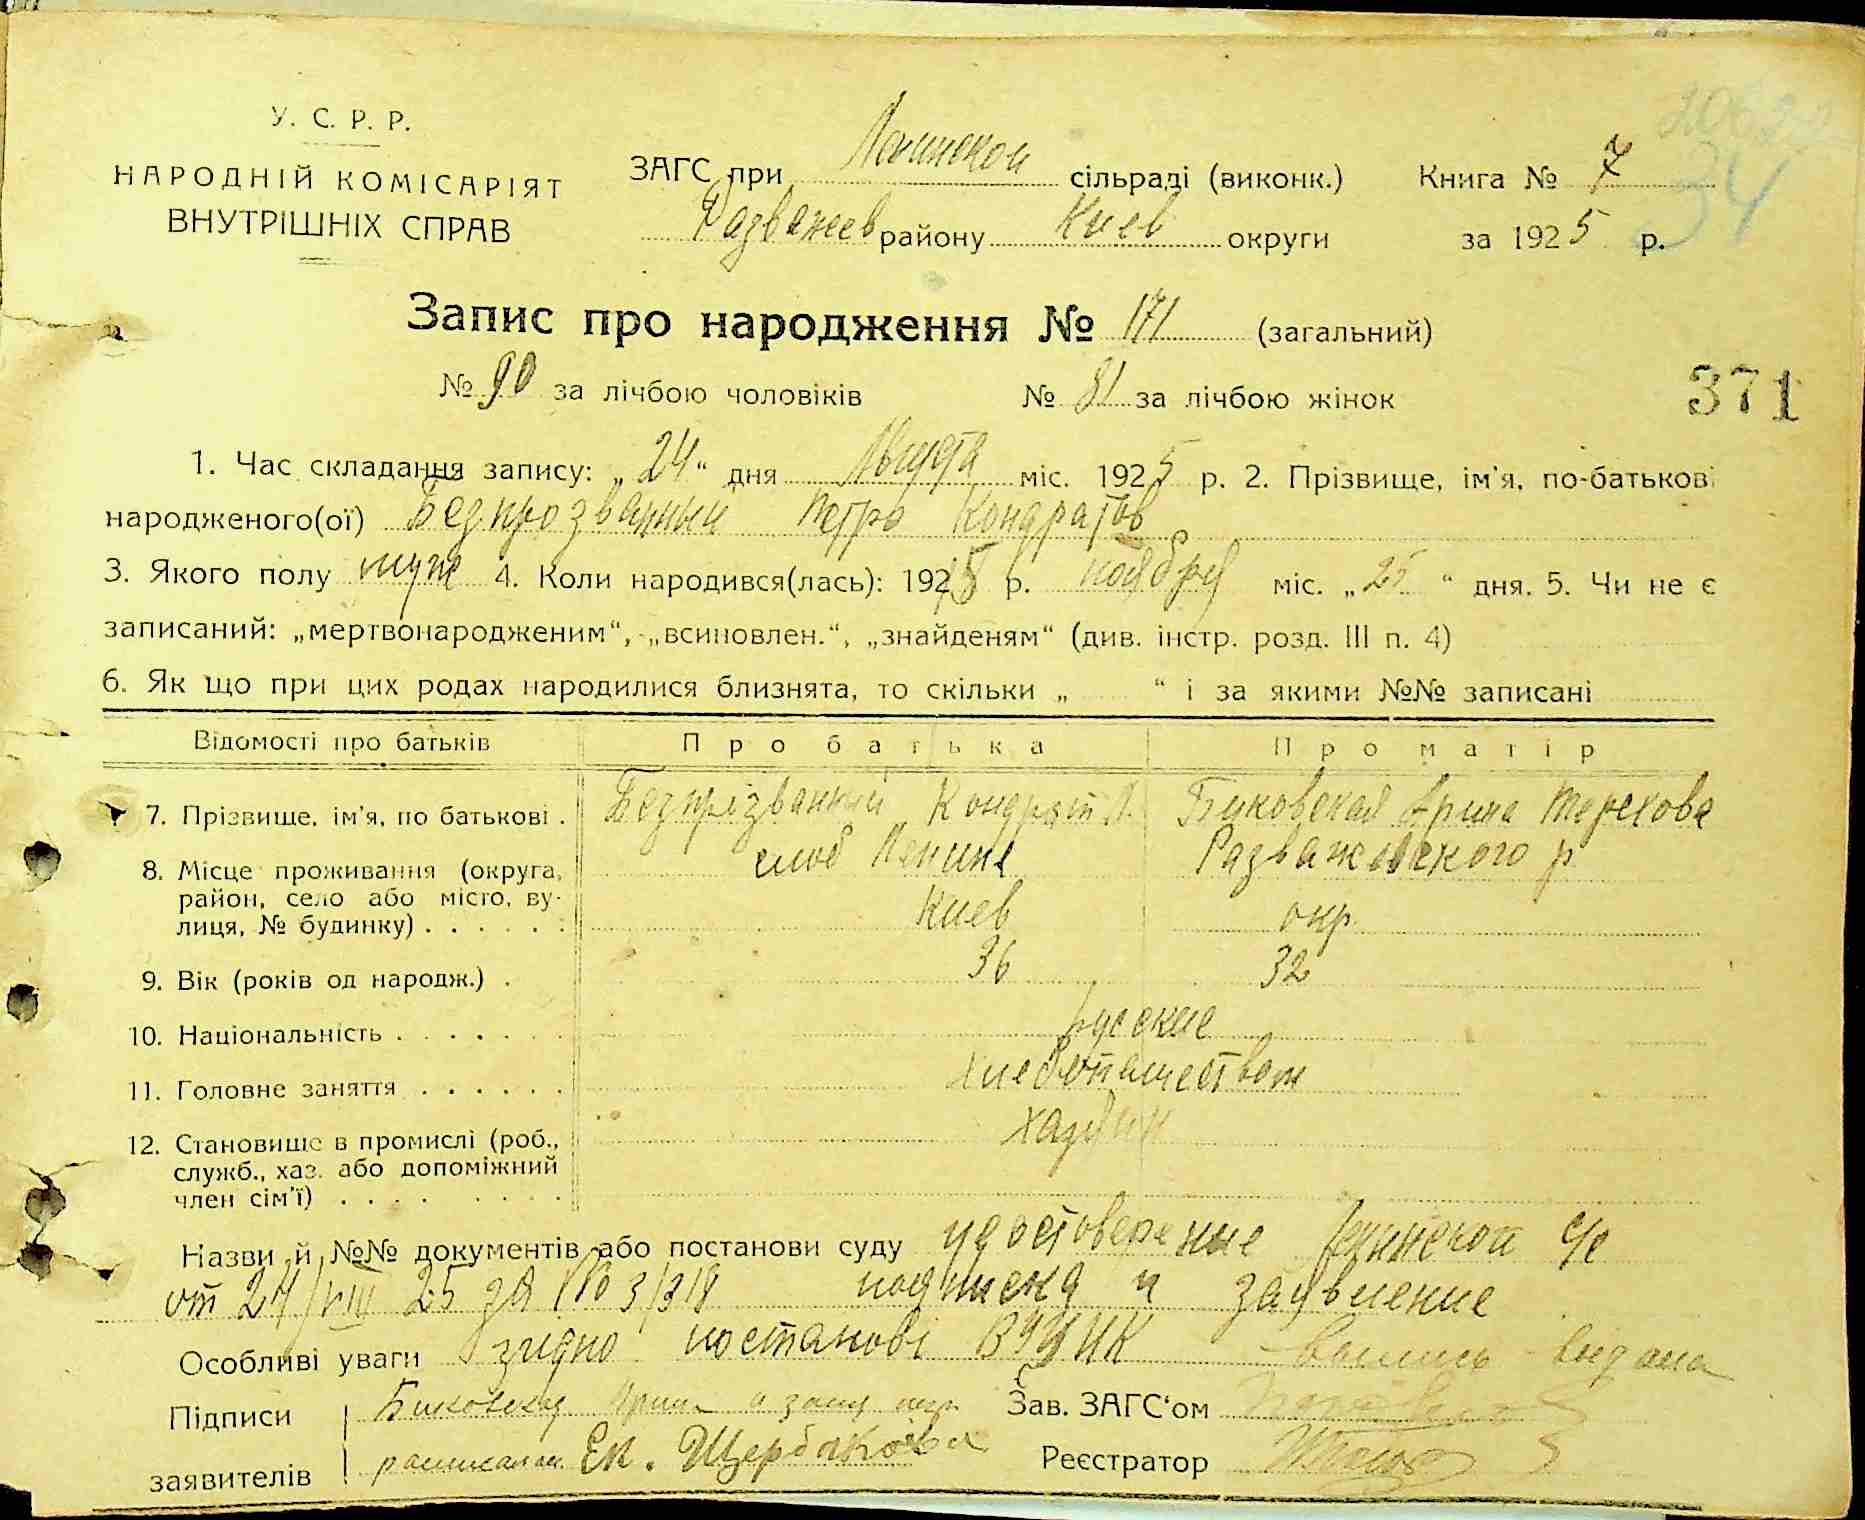 У. С. Р. Р.
НАРОДНІЙ КОМІСАРІЯТ
ВНУТРІШНІХ СПРАВ
ЗАГС при Ленинской сільраді (виконк.) Книга № 7
Розважев району Киев округи за 1925 р.
34
Запис про народження № 171 (загальний)
№ 90 за лічбою чоловіків № 81 за лічбою жінок
371
1. Час складання запису: „24“ дня Августа міс. 1925 р. 2. Прізвище, ім'я, по-батькові
народженого(ої) Безпрозванный Петро Кондратов
3. Якого полу муж 4. Коли народився(лась): 192 р. ноября міс. „25“ дня. 5. Чи не є
записаний: „мертвонародженим“, „всиновлен.“, „знайденям“ (див. інстр. розд. III п. 4)
6. Як що при цих родах народилися близнята, то скільки „ “ і за якими №№ записані
Відомості про батьків Про батька Про матір
7. Прізвище, ім'я, по батькові . Безпрізванний Кондрат Биковская Арина Терехова
8. Місце проживання (округа, слоб Ленина Розважевского р
район, село або місто, ву-
лиця, № будинку) . . . . . . Киев окр.
9. Вік (років од народж.) . 36 32
10. Національність . . . . . . . русские
11. Головне заняття . . . . . . хлебопашеством
12. Становище в промислі (роб.,
служб., хаз. або допоміжний
член сім'ї) . . . . . . . .
Назви й №№ документів або постанови суду удостоверение Ленинской с/с
от 24/VIII 25 за № 3/318 подписка и заявление
Особливі уваги згідно постанові ВУЦИК выпись выдана
Підписи Биковская Арина а за Зав. ЗАГС'ом
заявителів Ек. Щербакова Реєстратор